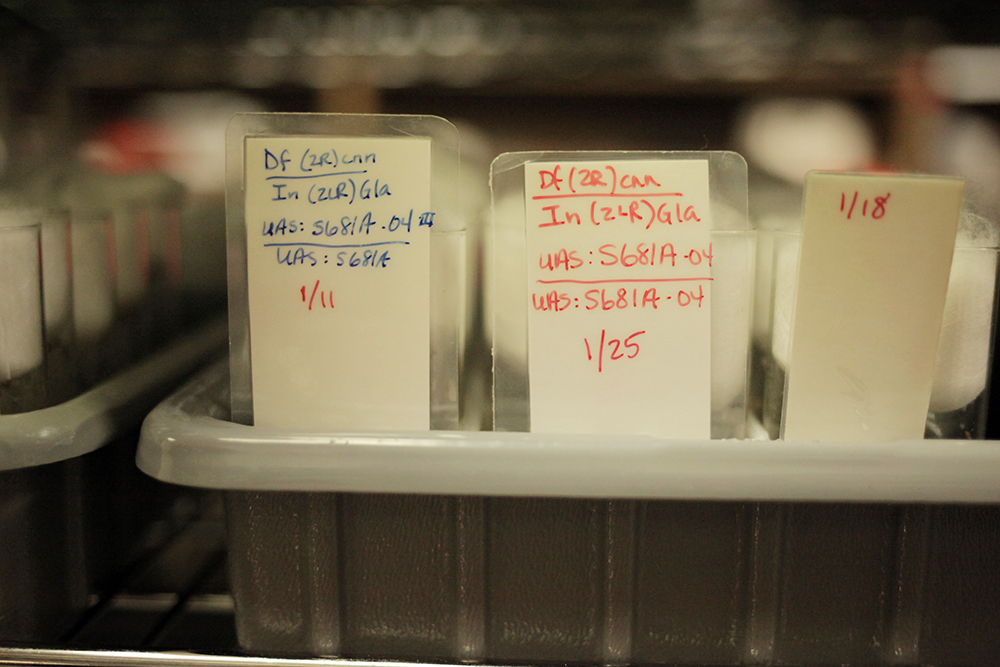 Df (2R)cnn
In (2LR)Gla
UAS: S681A-04 III
UAS: S681A
1/11
Df (2R)cnn
In (2LR)Gla
UAS: S681A-04
UAS: S681A-04
1/25
1/18